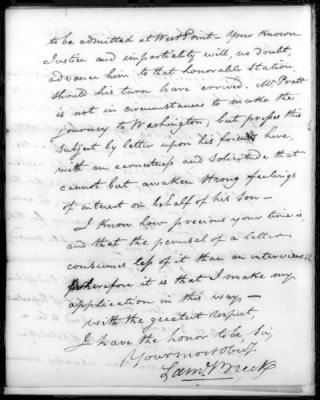 to be admitted at West Point – Your known
Justice and impartiality will, no doubt,
advance him to that honorable station
should his turn have arrived. Mr Pratt
is not in circumstances to make the
journey to Washington; but press this
subject by letter upon his friends here,
with an earnestness and solicitude that
cannot but awaken strong feelings
of interest on behalf of his Son –
I know how precious your time is,
and that the perusal of a letter
consumes less of it than an interview
Wherefore it is that I make my
application in this way. –
With the greatest respect,
I have the honor to be, Sir,
Your most Obt
Saml Breck